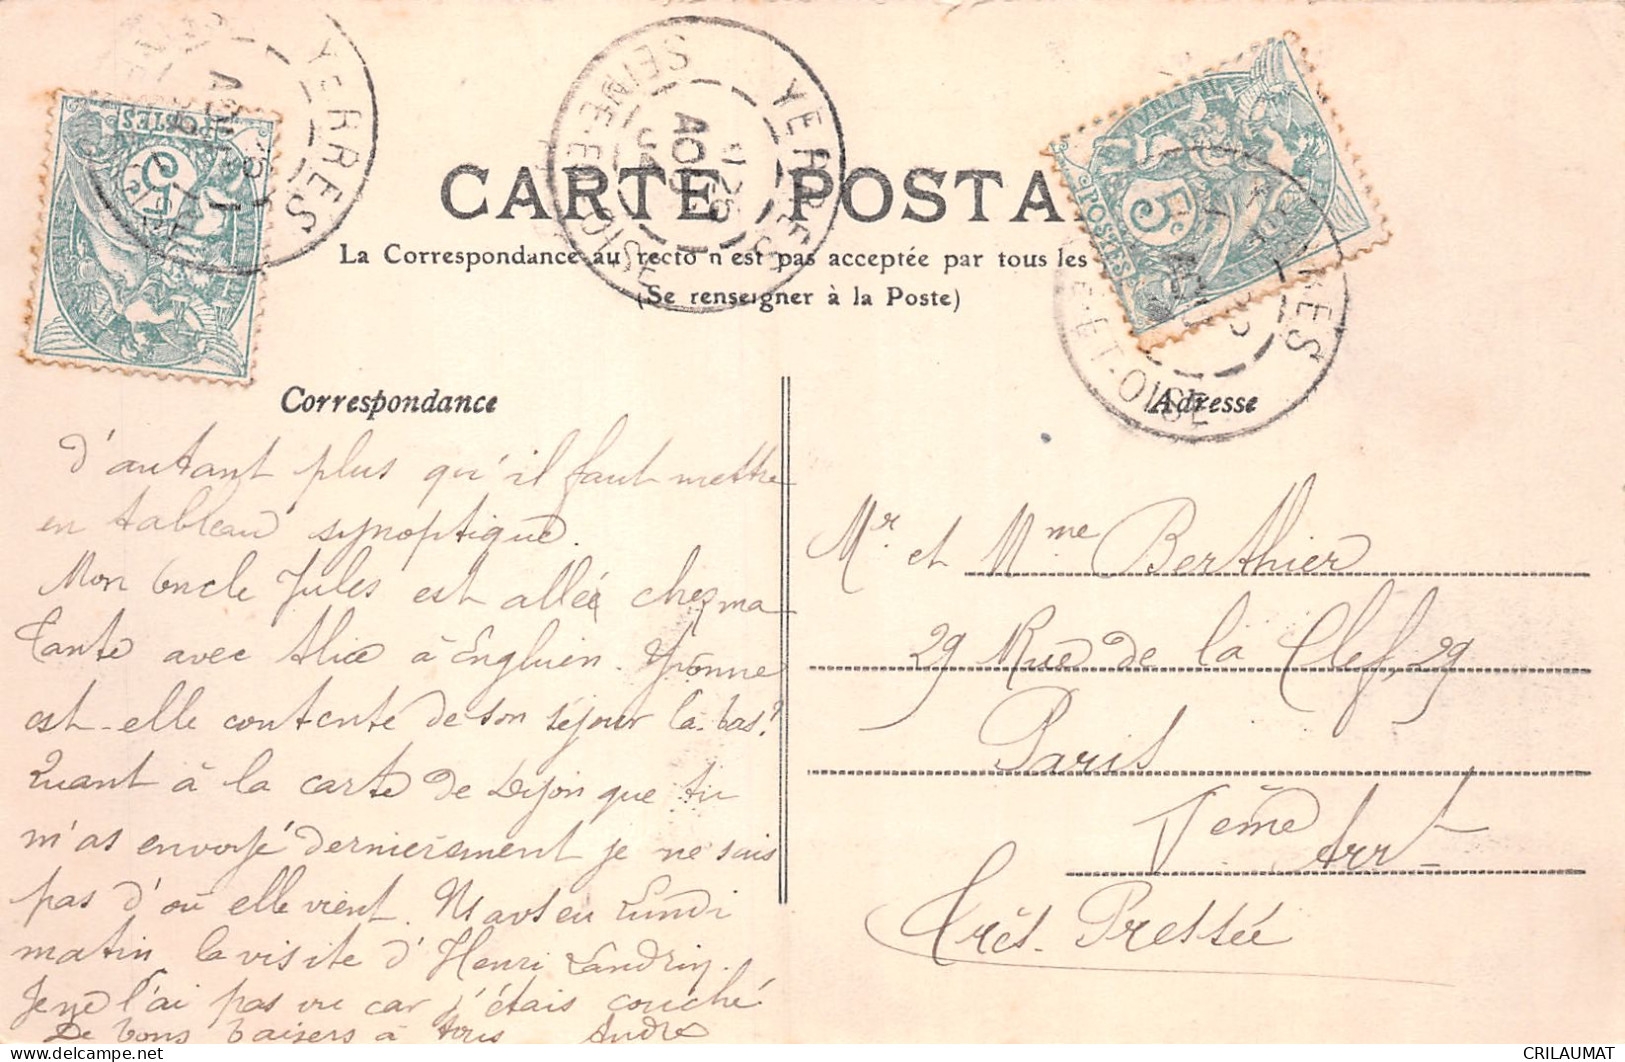 YERRES
SEINE-ET-OISE
YERRES
SEINE-ET-OISE
AOUT
POSTES
5c
POSTES
5c
YERRES
ET-OISE
CARTE POSTA
La Correspondance au recto n'est pas acceptée par tous les
(Se renseigner à la Poste)
Correspondance
d'autant plus qu'il faut mettre
en tableau synoptique.
Mon Oncle Jules est allée chez ma
Tante avec Alice à Enghien. Yvonne
est-elle contente de son séjour là-bas?
Quant à la carte de Dijon que tu
m'as envoyé dernièrement je ne sais
pas d'où elle vient. Ns avons eu Lundi
matin la visite d'Henri Landrin.
Je ne l'ai pas vu car j'étais couché
De bons baisers à tous André
Adresse
Mr et Mme Berthier
29 Rue de la Clef, 29
Paris
Vème Arrt
Très-Pressée
CRILAUMAT